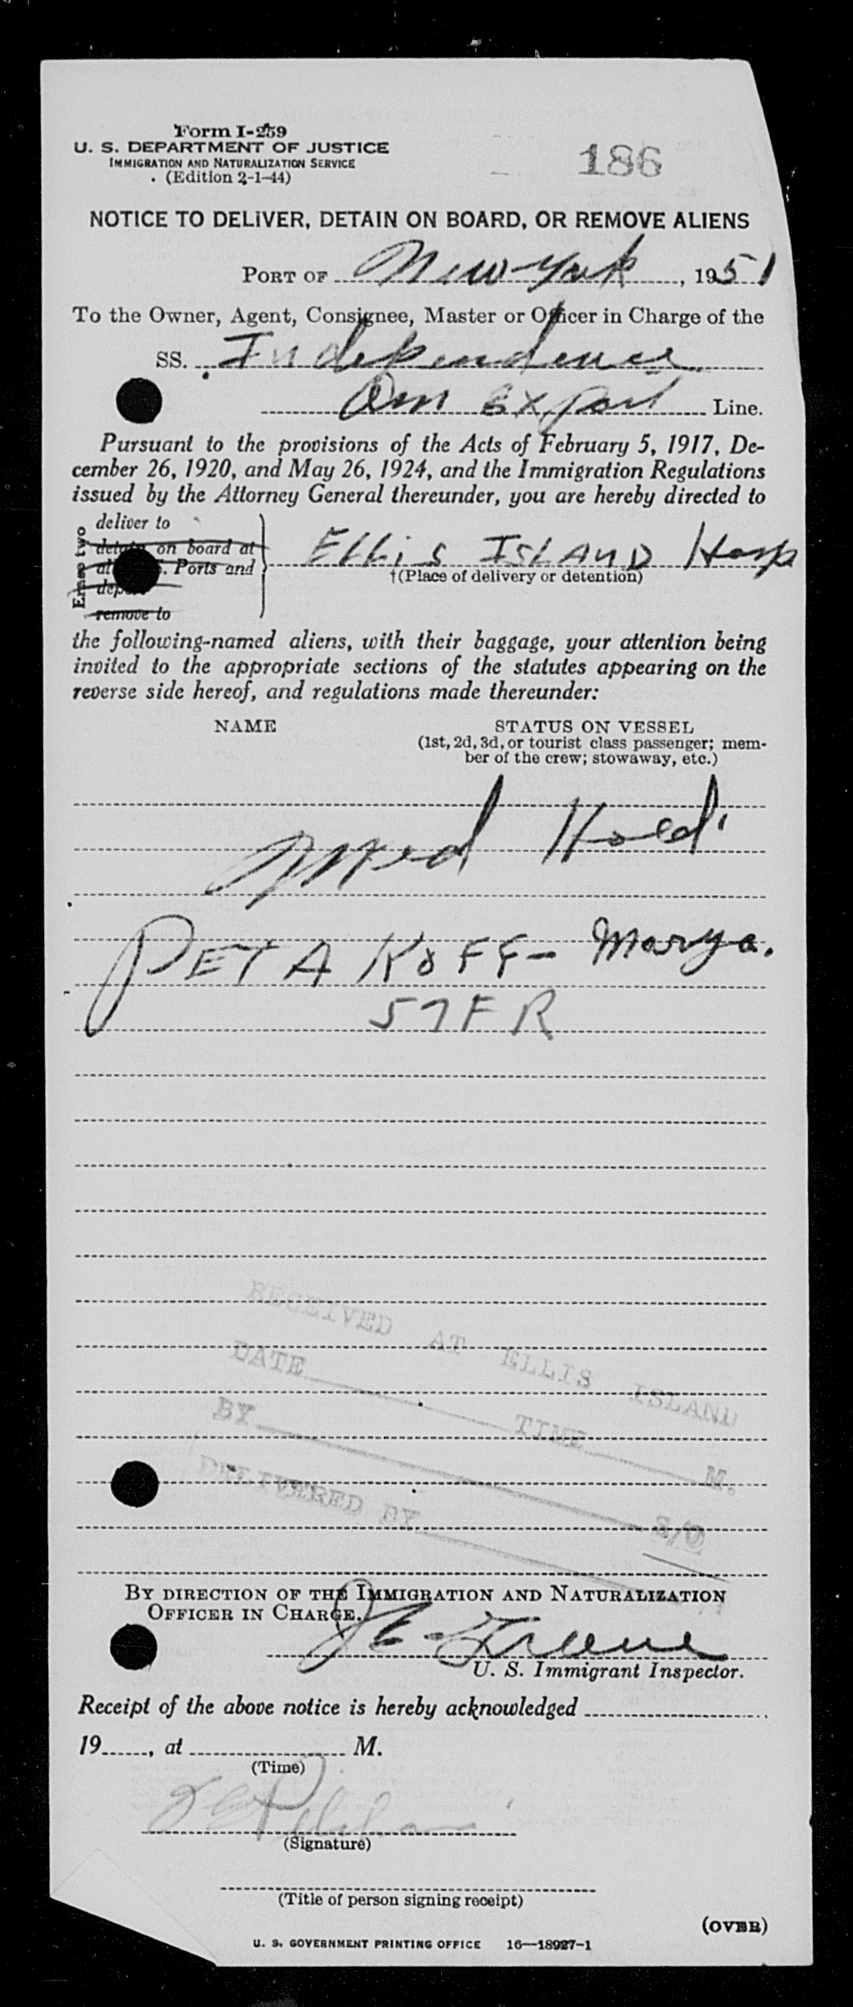 Form I-259
U. S. DEPARTMENT OF JUSTICE
IMMIGRATION AND NATURALIZATION SERVICE
(Edition 2-1-44)
186
NOTICE TO DELIVER, DETAIN ON BOARD, OR REMOVE ALIENS
PORT OF New York, 1951
To the Owner, Agent, Consignee, Master or Officer in Charge of the
SS. Independence
Am Export Line.
Pursuant to the provisions of the Acts of February 5, 1917, De-
cember 26, 1920, and May 26, 1924, and the Immigration Regulations
issued by the Attorney General thereunder, you are hereby directed to
Erase two
deliver to
detain on board at
Ports and
remove to
ELLIS ISLAND Hosp
†(Place of delivery or detention)
the following-named aliens, with their baggage, your attention being
invited to the appropriate sections of the statutes appearing on the
reverse side hereof, and regulations made thereunder:
NAME STATUS ON VESSEL
(1st, 2d, 3d, or tourist class passenger; mem-
ber of the crew; stowaway, etc.)
Med Hold
PETAKOFF - Marya.
57 F R
RECEIVED AT ELLIS ISLAND
DATE TIME M.
BY
DELIVERED BY
BY DIRECTION OF THE IMMIGRATION AND NATURALIZATION
OFFICER IN CHARGE.
U. S. Immigrant Inspector.
Receipt of the above notice is hereby acknowledged
19......, at M.
(Time)
(Signature)
(Title of person signing receipt)
(OVER)
U. S. GOVERNMENT PRINTING OFFICE 16—18927-1